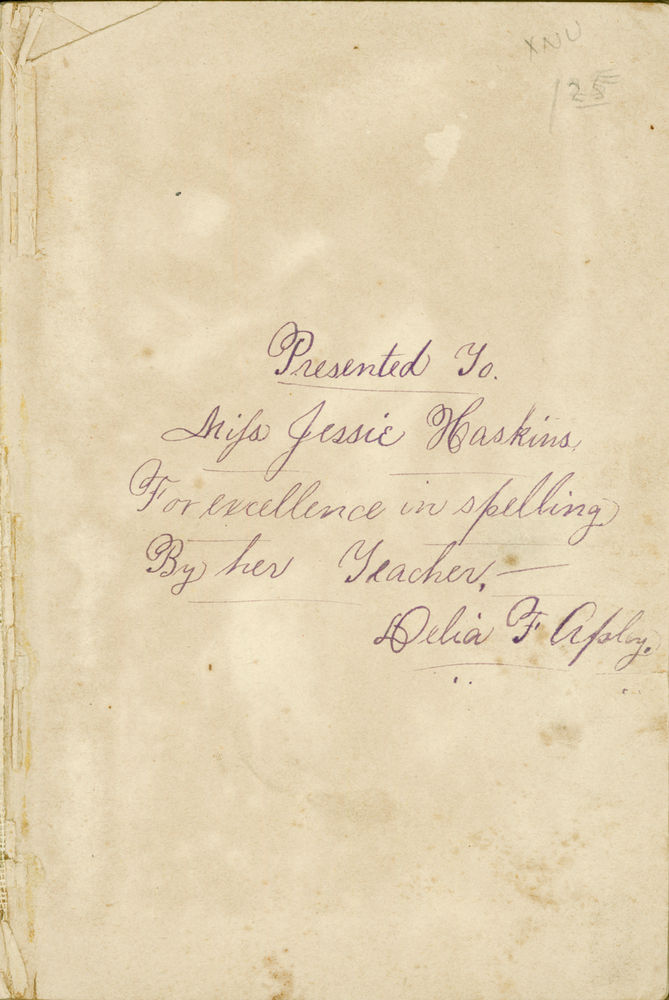 XNU
1 25
Presented To.
Miss Jessie Haskins,
For excellence in spelling
By her Teacher, —
Delia F. Apley.